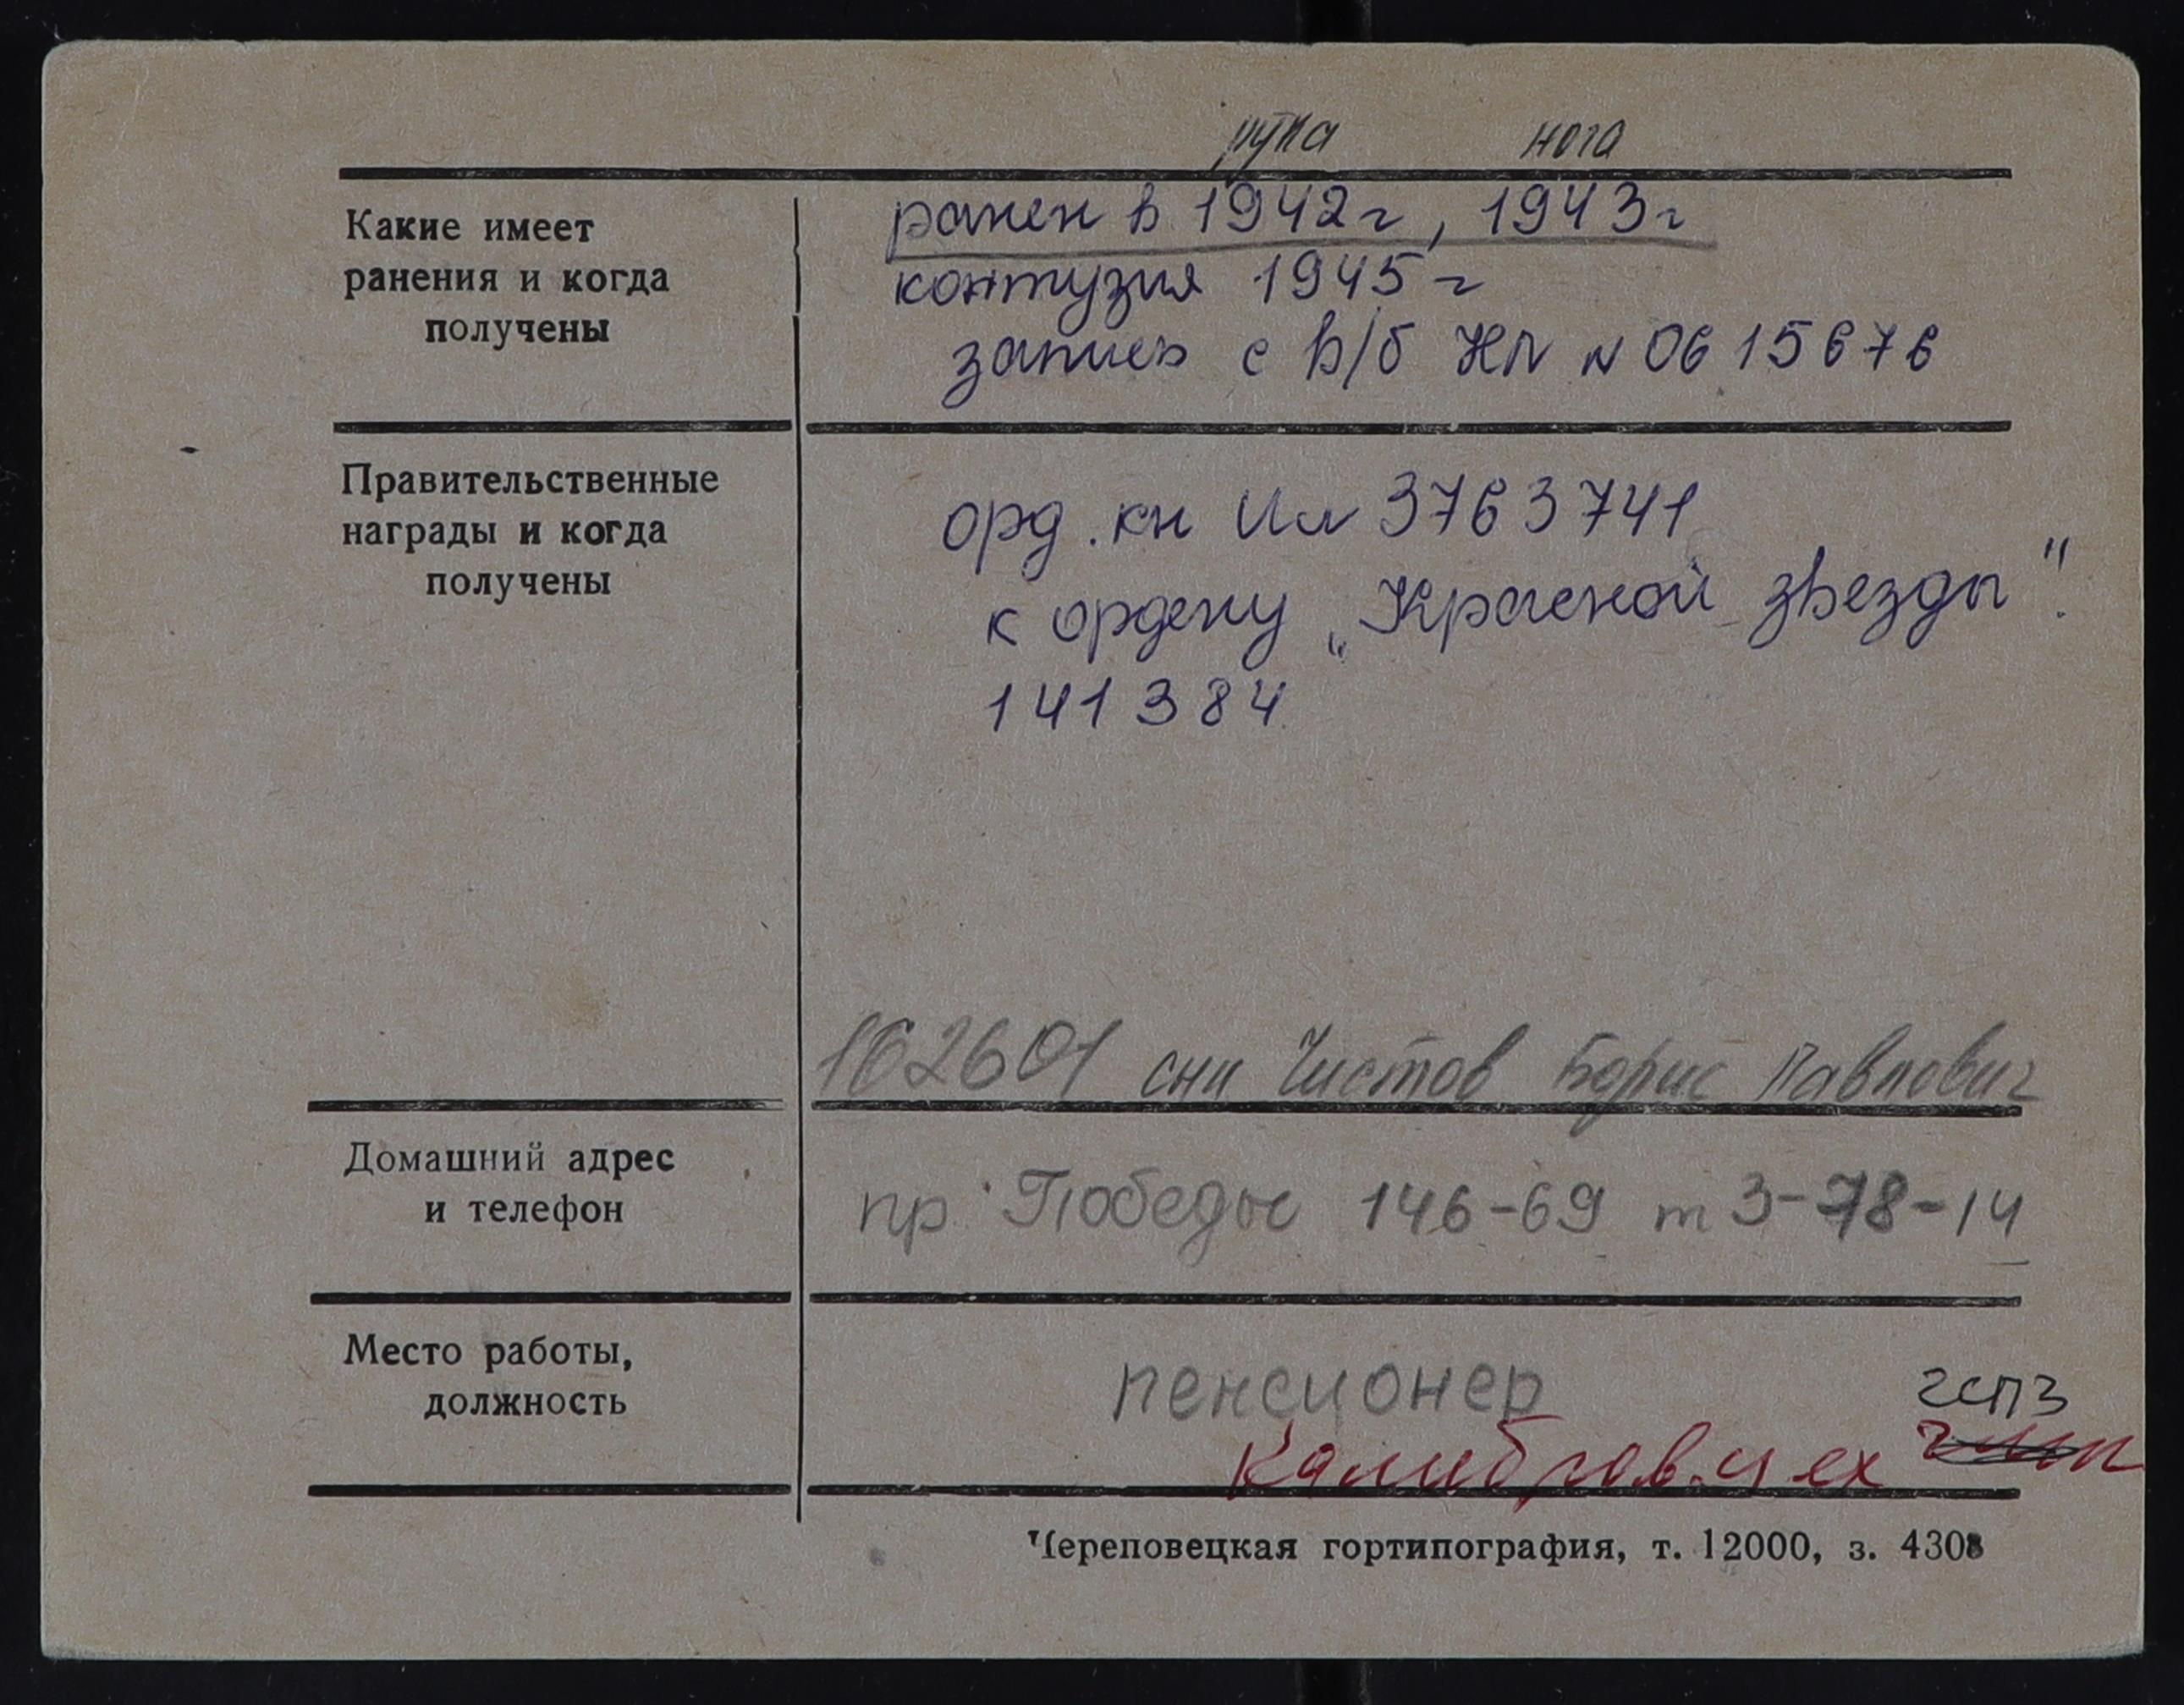 рука нога
Какие имеет
ранения и когда
получены
ранен в 1942г, 1943г
контузия 1945г
запись с в/б НЛ № 0615676
Правительственные
награды и когда
получены
орд. кн Ил 3763741
к ордену „Красной звезды".
141384
162601 сын Чистов Борис Павлович
Домашний адрес
и телефон
пр. Победы 146-69 т 3-78-14
Место работы,
должность
пенсионер
гспз
Калибров. цех
Череповецкая гортипография, т. 12000, з. 4308